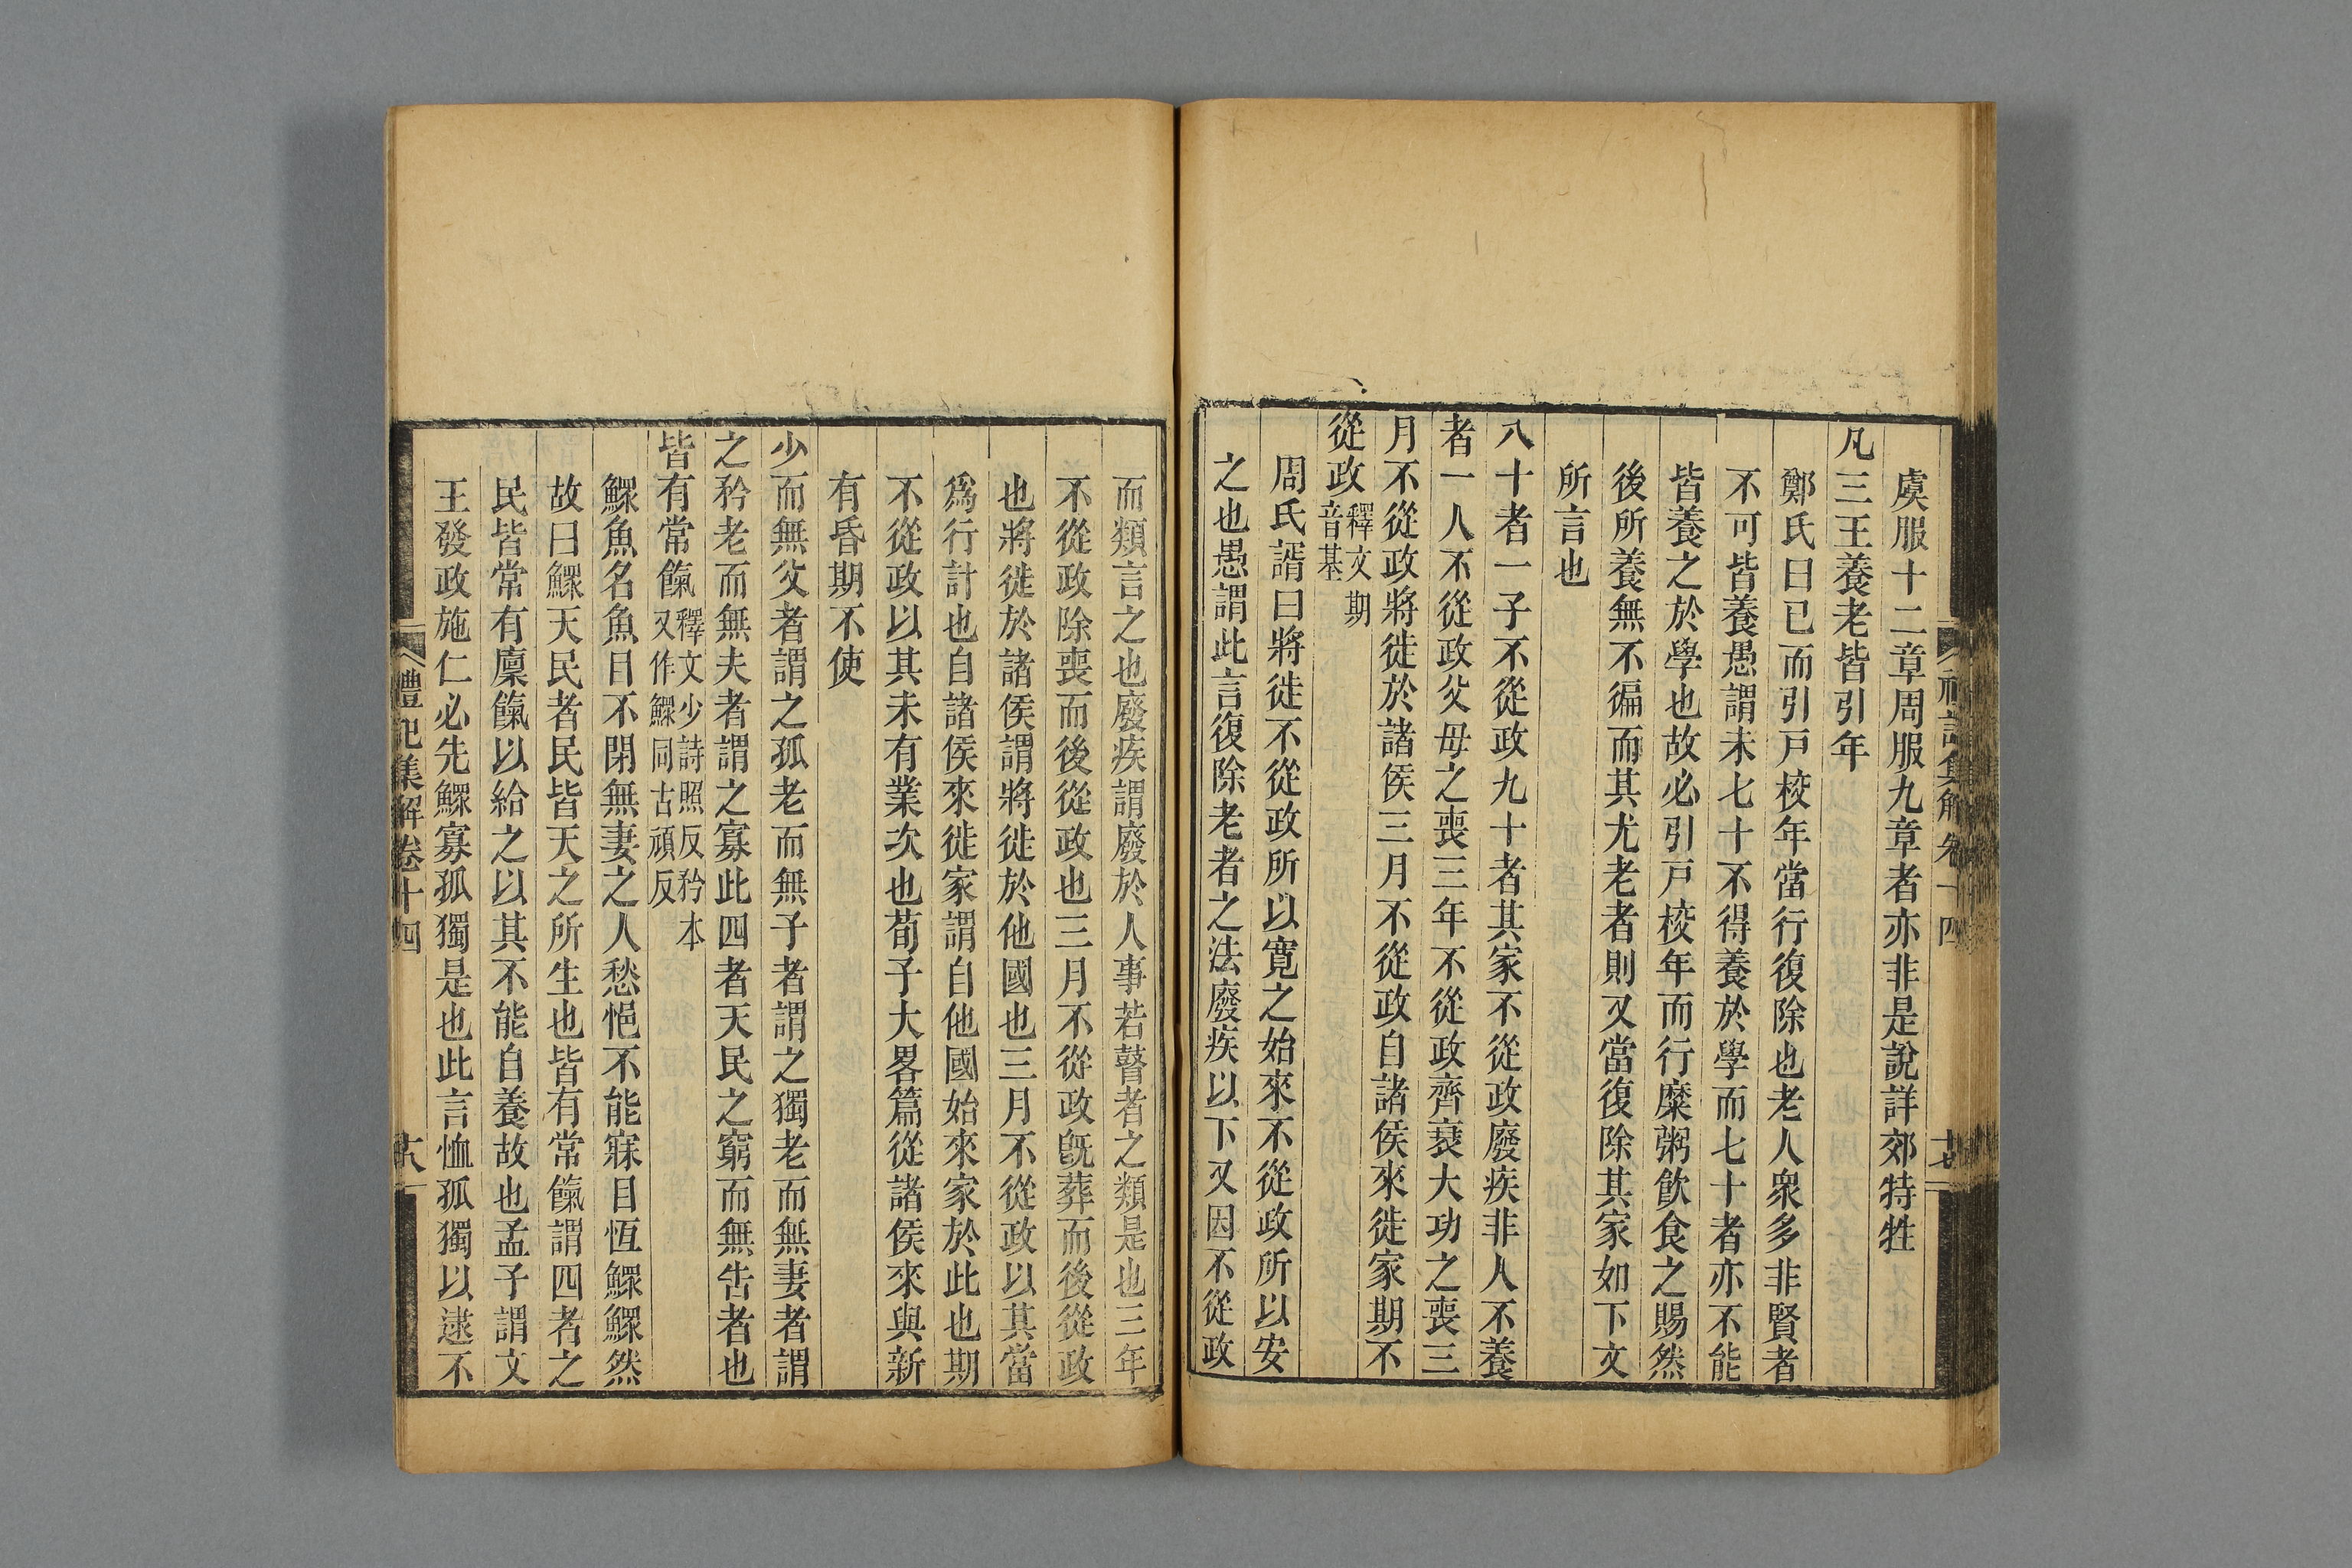 虞服十二章周服九章者亦非是說詳郊特牲
凡三王養老皆引年
鄭氏曰已而引戸校年當行復除也老人衆多非賢者
不可皆養愚謂未七十不得養於學而七十者亦不能
皆養之於學也故必引戸校年而行糜粥飮食之賜然
後所養無不徧而其尤老者則又當復除其家如下文
所言也
八十者一子不從政九十者其家不從政廢疾非人不養
者一人不從政父母之喪三年不從政齊衰大功之喪三
月不從政將徙於諸侯三月不從政自諸侯來徙家期不
從政釋文期音基
周氏諝曰將徙不從政所以寛之始來不從政所以安
之也愚謂此言復除老者之法廢疾以下又因不從政
而類言之也廢疾謂廢於人事若瞽者之類是也三年
不從政除喪而後從政也三月不從政旣葬而後從政
也將徙於諸侯謂將徙於他國也三月不從政以其當
爲行計也自諸侯來徙家謂自他國始來家於此也期
不從政以其未有業次也荀子大畧篇從諸侯來與新
有昏期不使
少而無父者謂之孤老而無子者謂之獨老而無妻者謂
之矜老而無夫者謂之寡此四者天民之窮而無告者也
皆有常餼釋文少詩照反矜本又作鰥同古頑反
鰥魚名魚目不閉無妻之人愁悒不能寐目恆鰥鰥然
故曰鰥天民者民皆天之所生也皆有常餼謂四者之
民皆常有廩餼以給之以其不能自養故也孟子謂文
王發政施仁必先鰥寡孤獨是也此言恤孤獨以逮不
禮記集解卷十四
十八